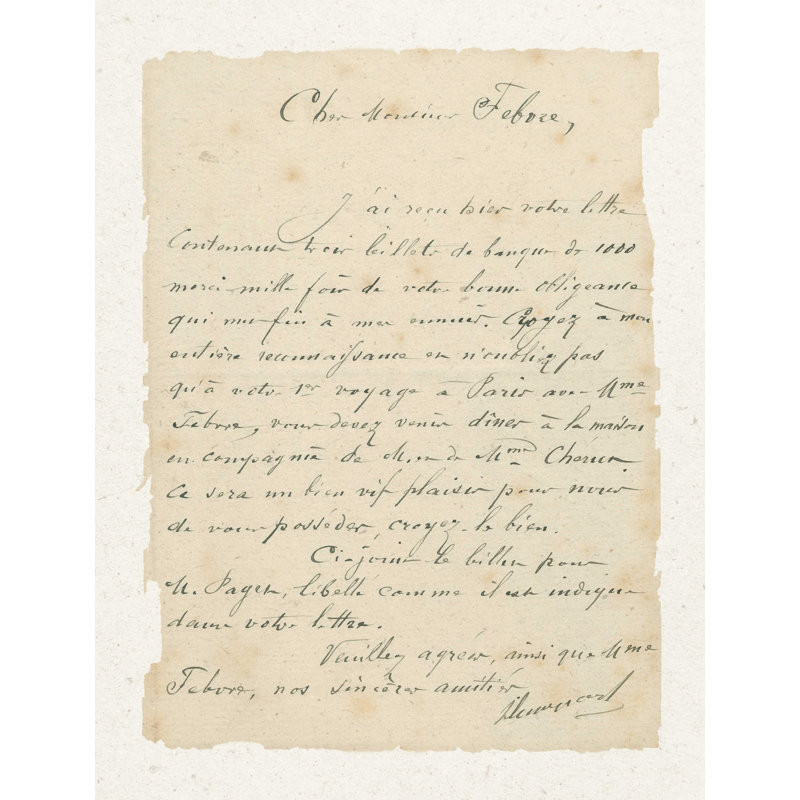 Cher Monsieur Febvre,
J'ai reçu hier votre lettre
contenant trois billets de banque de 1000
merci mille fois de votre bonne obligeance
qui à mes ennuis. Croyez à mon
entière reconnaissance et n'oubliez pas
qu'à votre 1er voyage à Paris avec Mme
Febvre, vous devez venir dîner à la maison
en compagnie de M. et de Mme
Ce sera un bien vif plaisir pour nous
de vous posséder, croyez-le bien.
Ci-joint le billet pour
M. Paget, libellé comme il est indiqué
dans votre lettre.
Veuillez agréer, ainsi que Mme
Febvre, nos sincères amitiés